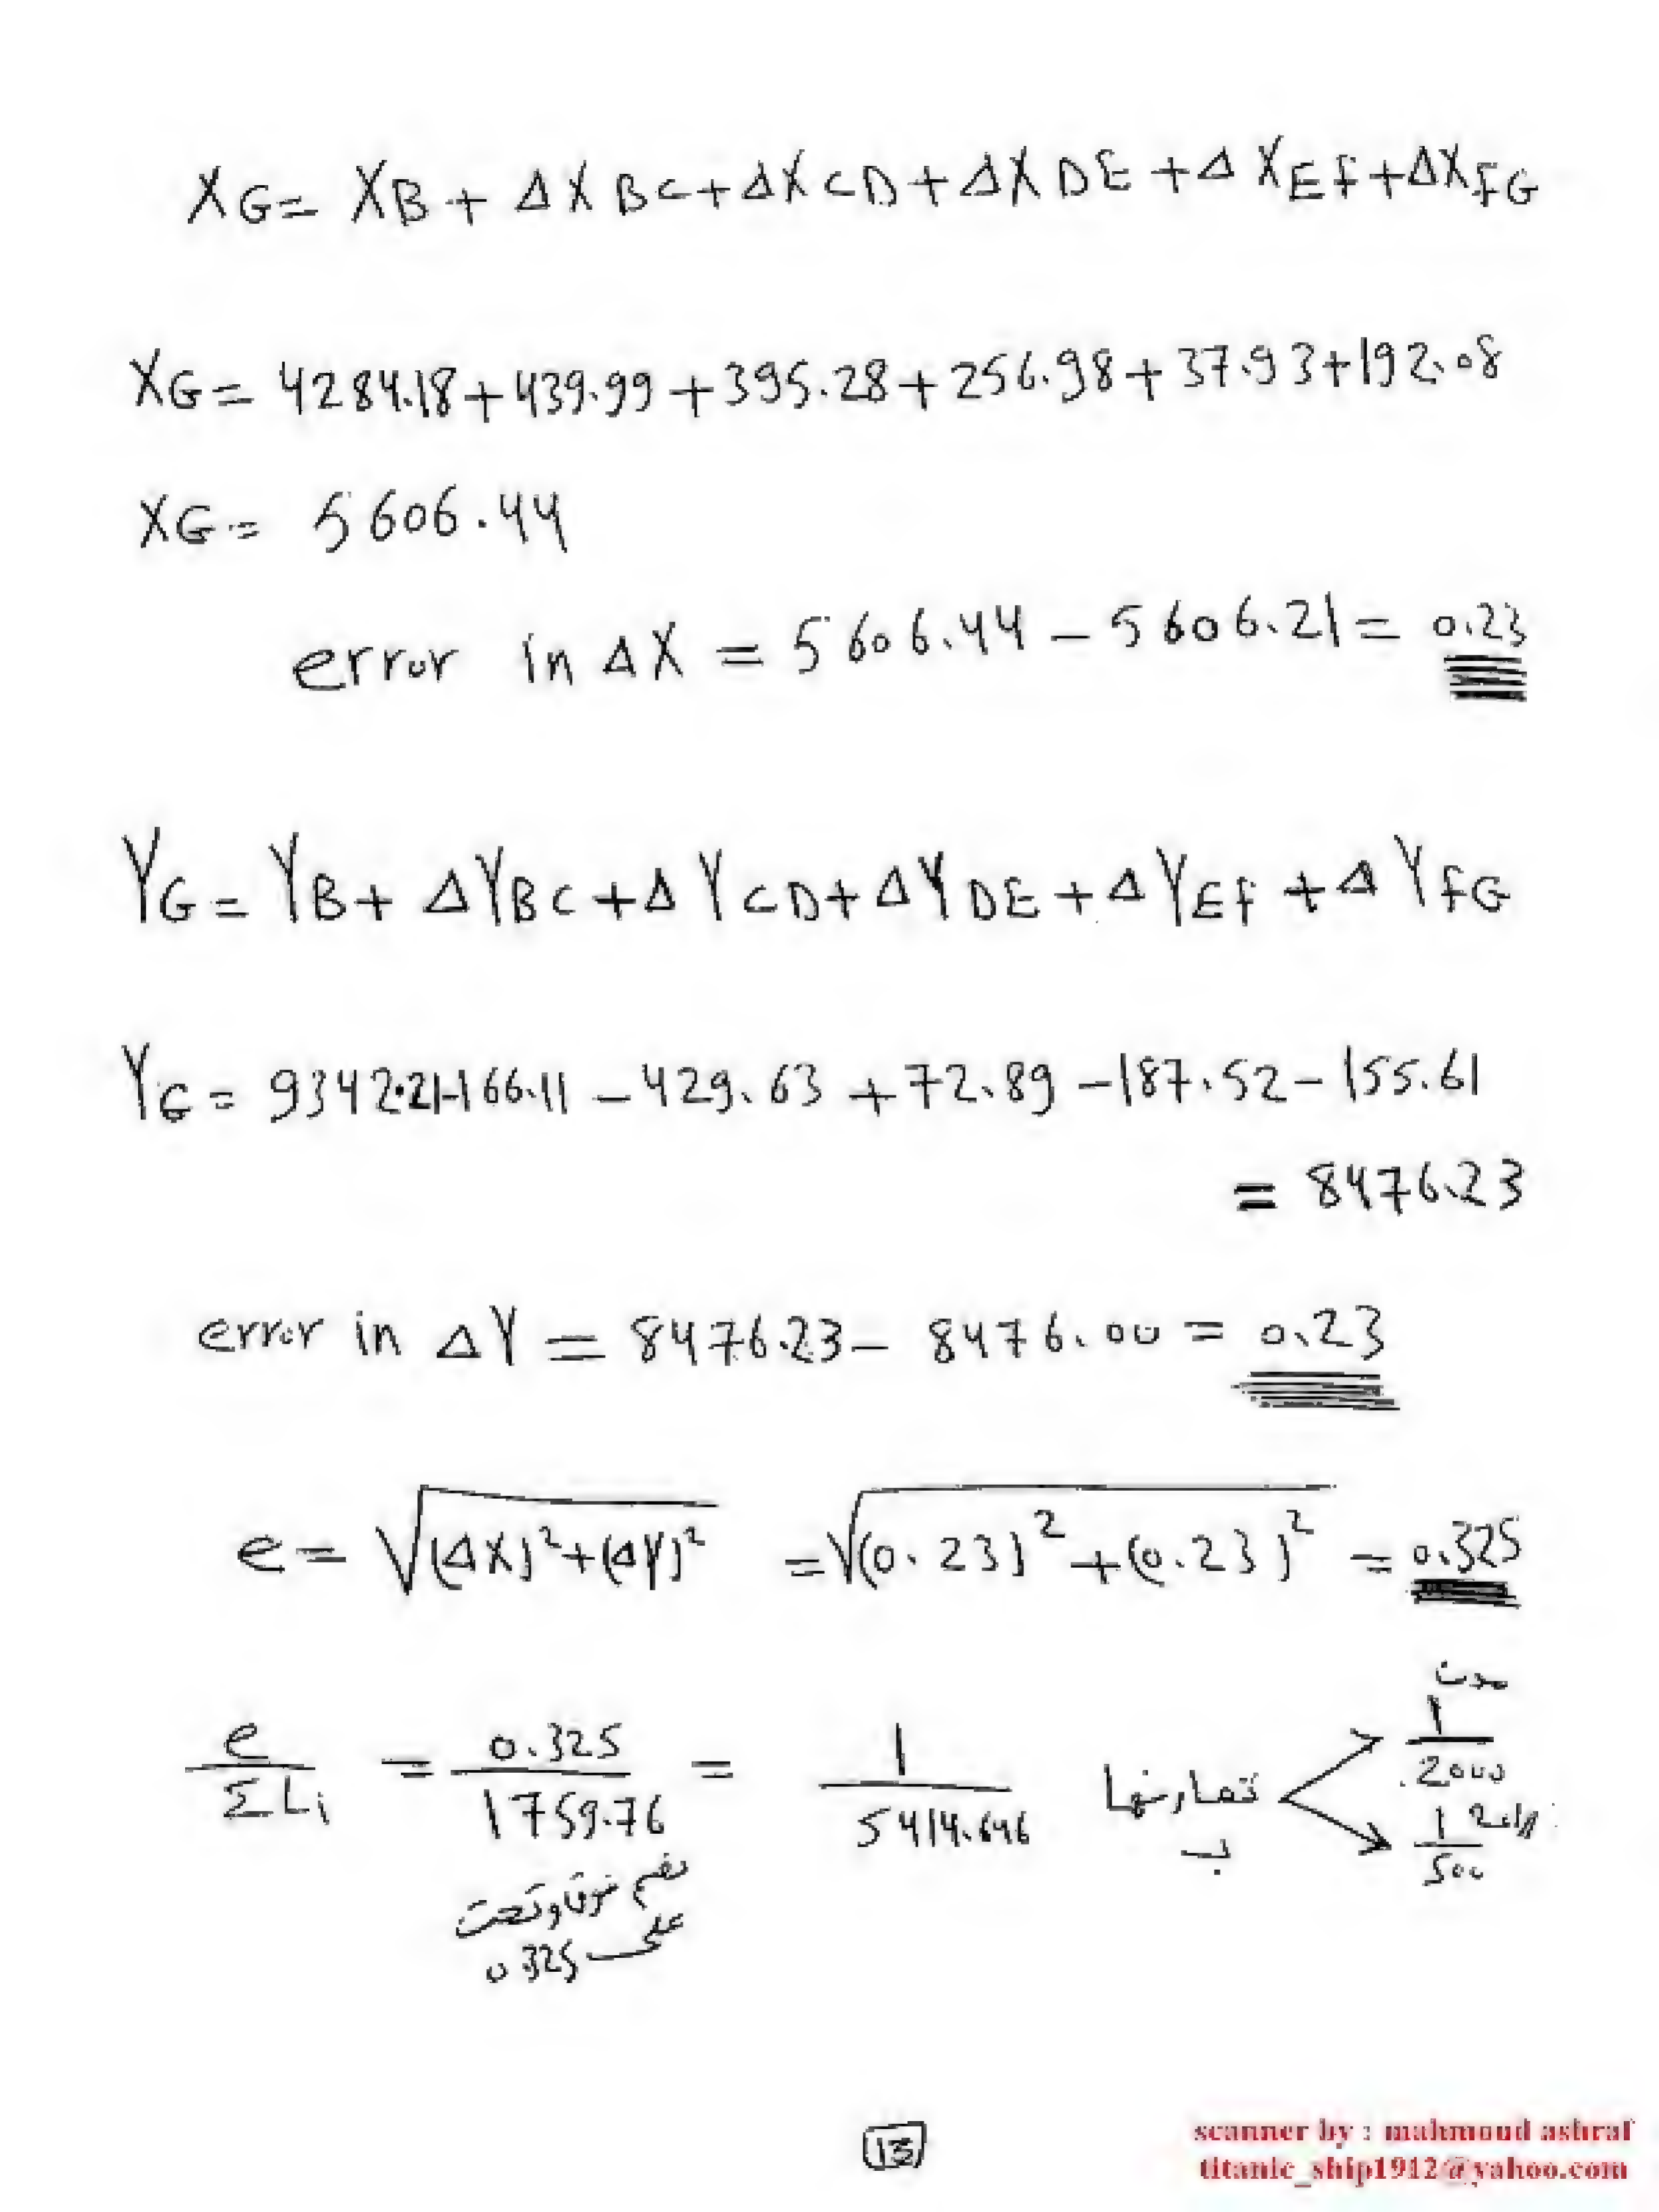 XG = XB + ΔXBC + ΔXCD + ΔXDE + ΔXEF + ΔXFG
XG = 4284.18 + 439.99 + 395.28 + 256.98 + 37.93 + 192.08
XG = 5606.44
error in ΔX = 5606.44 - 5606.21 = 0.23
YG = YB + ΔYBC + ΔYCD + ΔYDE + ΔYEF + ΔYFG
YG = 9342.21 - 166.11 - 429.63 + 72.89 - 187.52 - 155.61
= 8476.23
error in ΔY = 8476.23 - 8476.00 = 0.23
e = √(ΔX)²+(ΔY)² = √(0.23)²+(0.23)² = 0.325
e/ΣLi = 0.325/1759.76 = 1/5414.646 تقارنها ب مدن 1/2000 1/500
نقسم فوق وتحت
على 0.325
13
scanner by : mahmoud ashraf
titanic_ship1912@yahoo.com